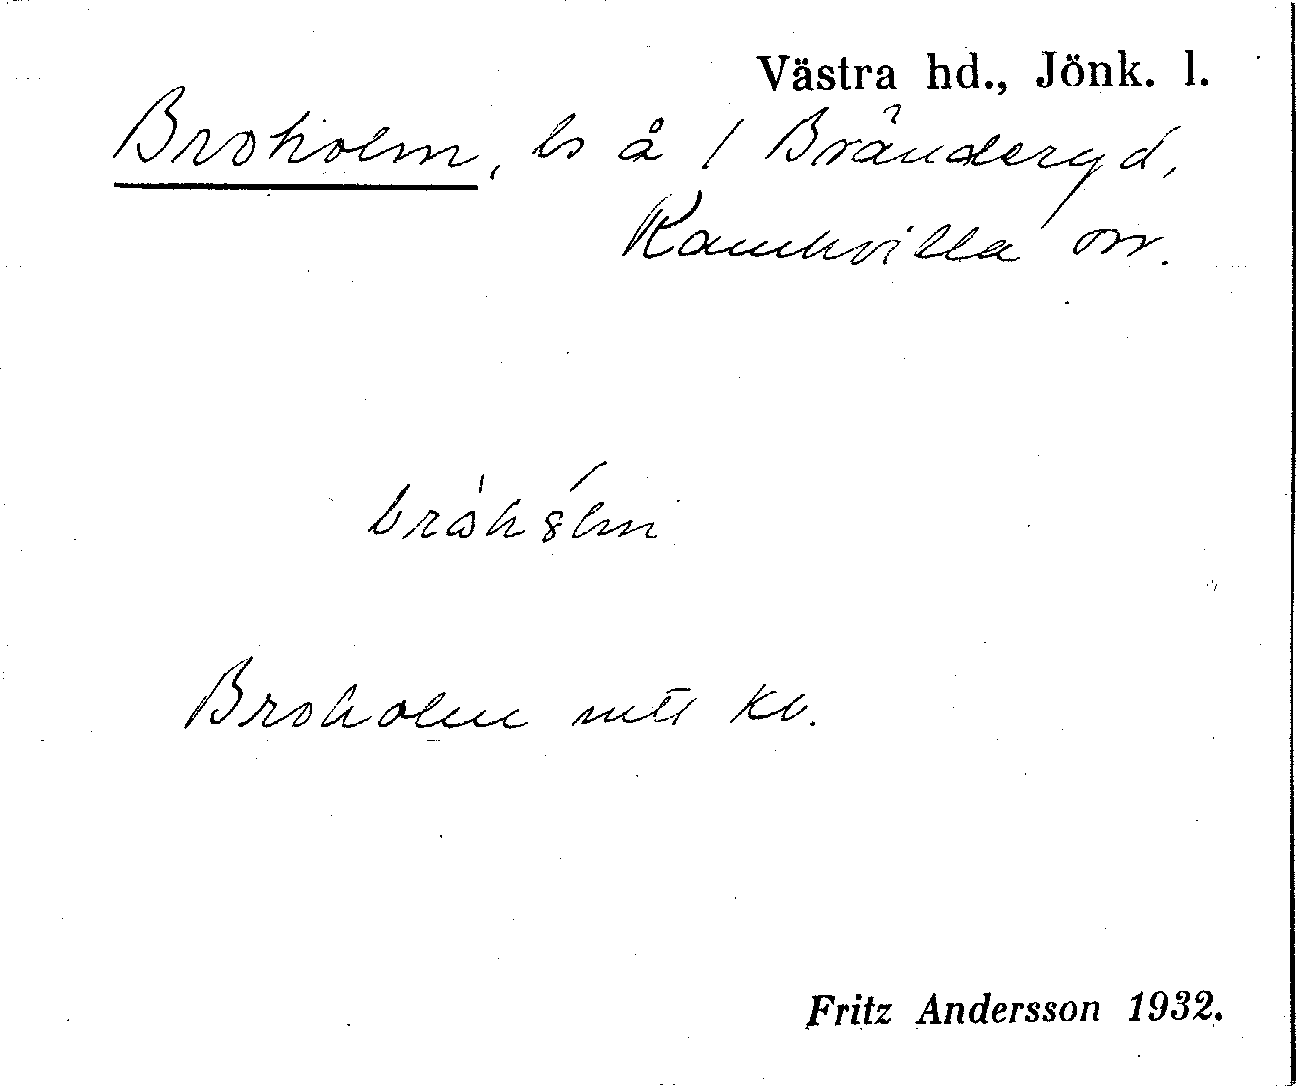 Västra hd., Jönk. l.
Broholm, ls å 1 Brändery d,
Ramkvilla sn.
bròh8́lm
Broholm mtl kb.
Fritz Andersson 1932.